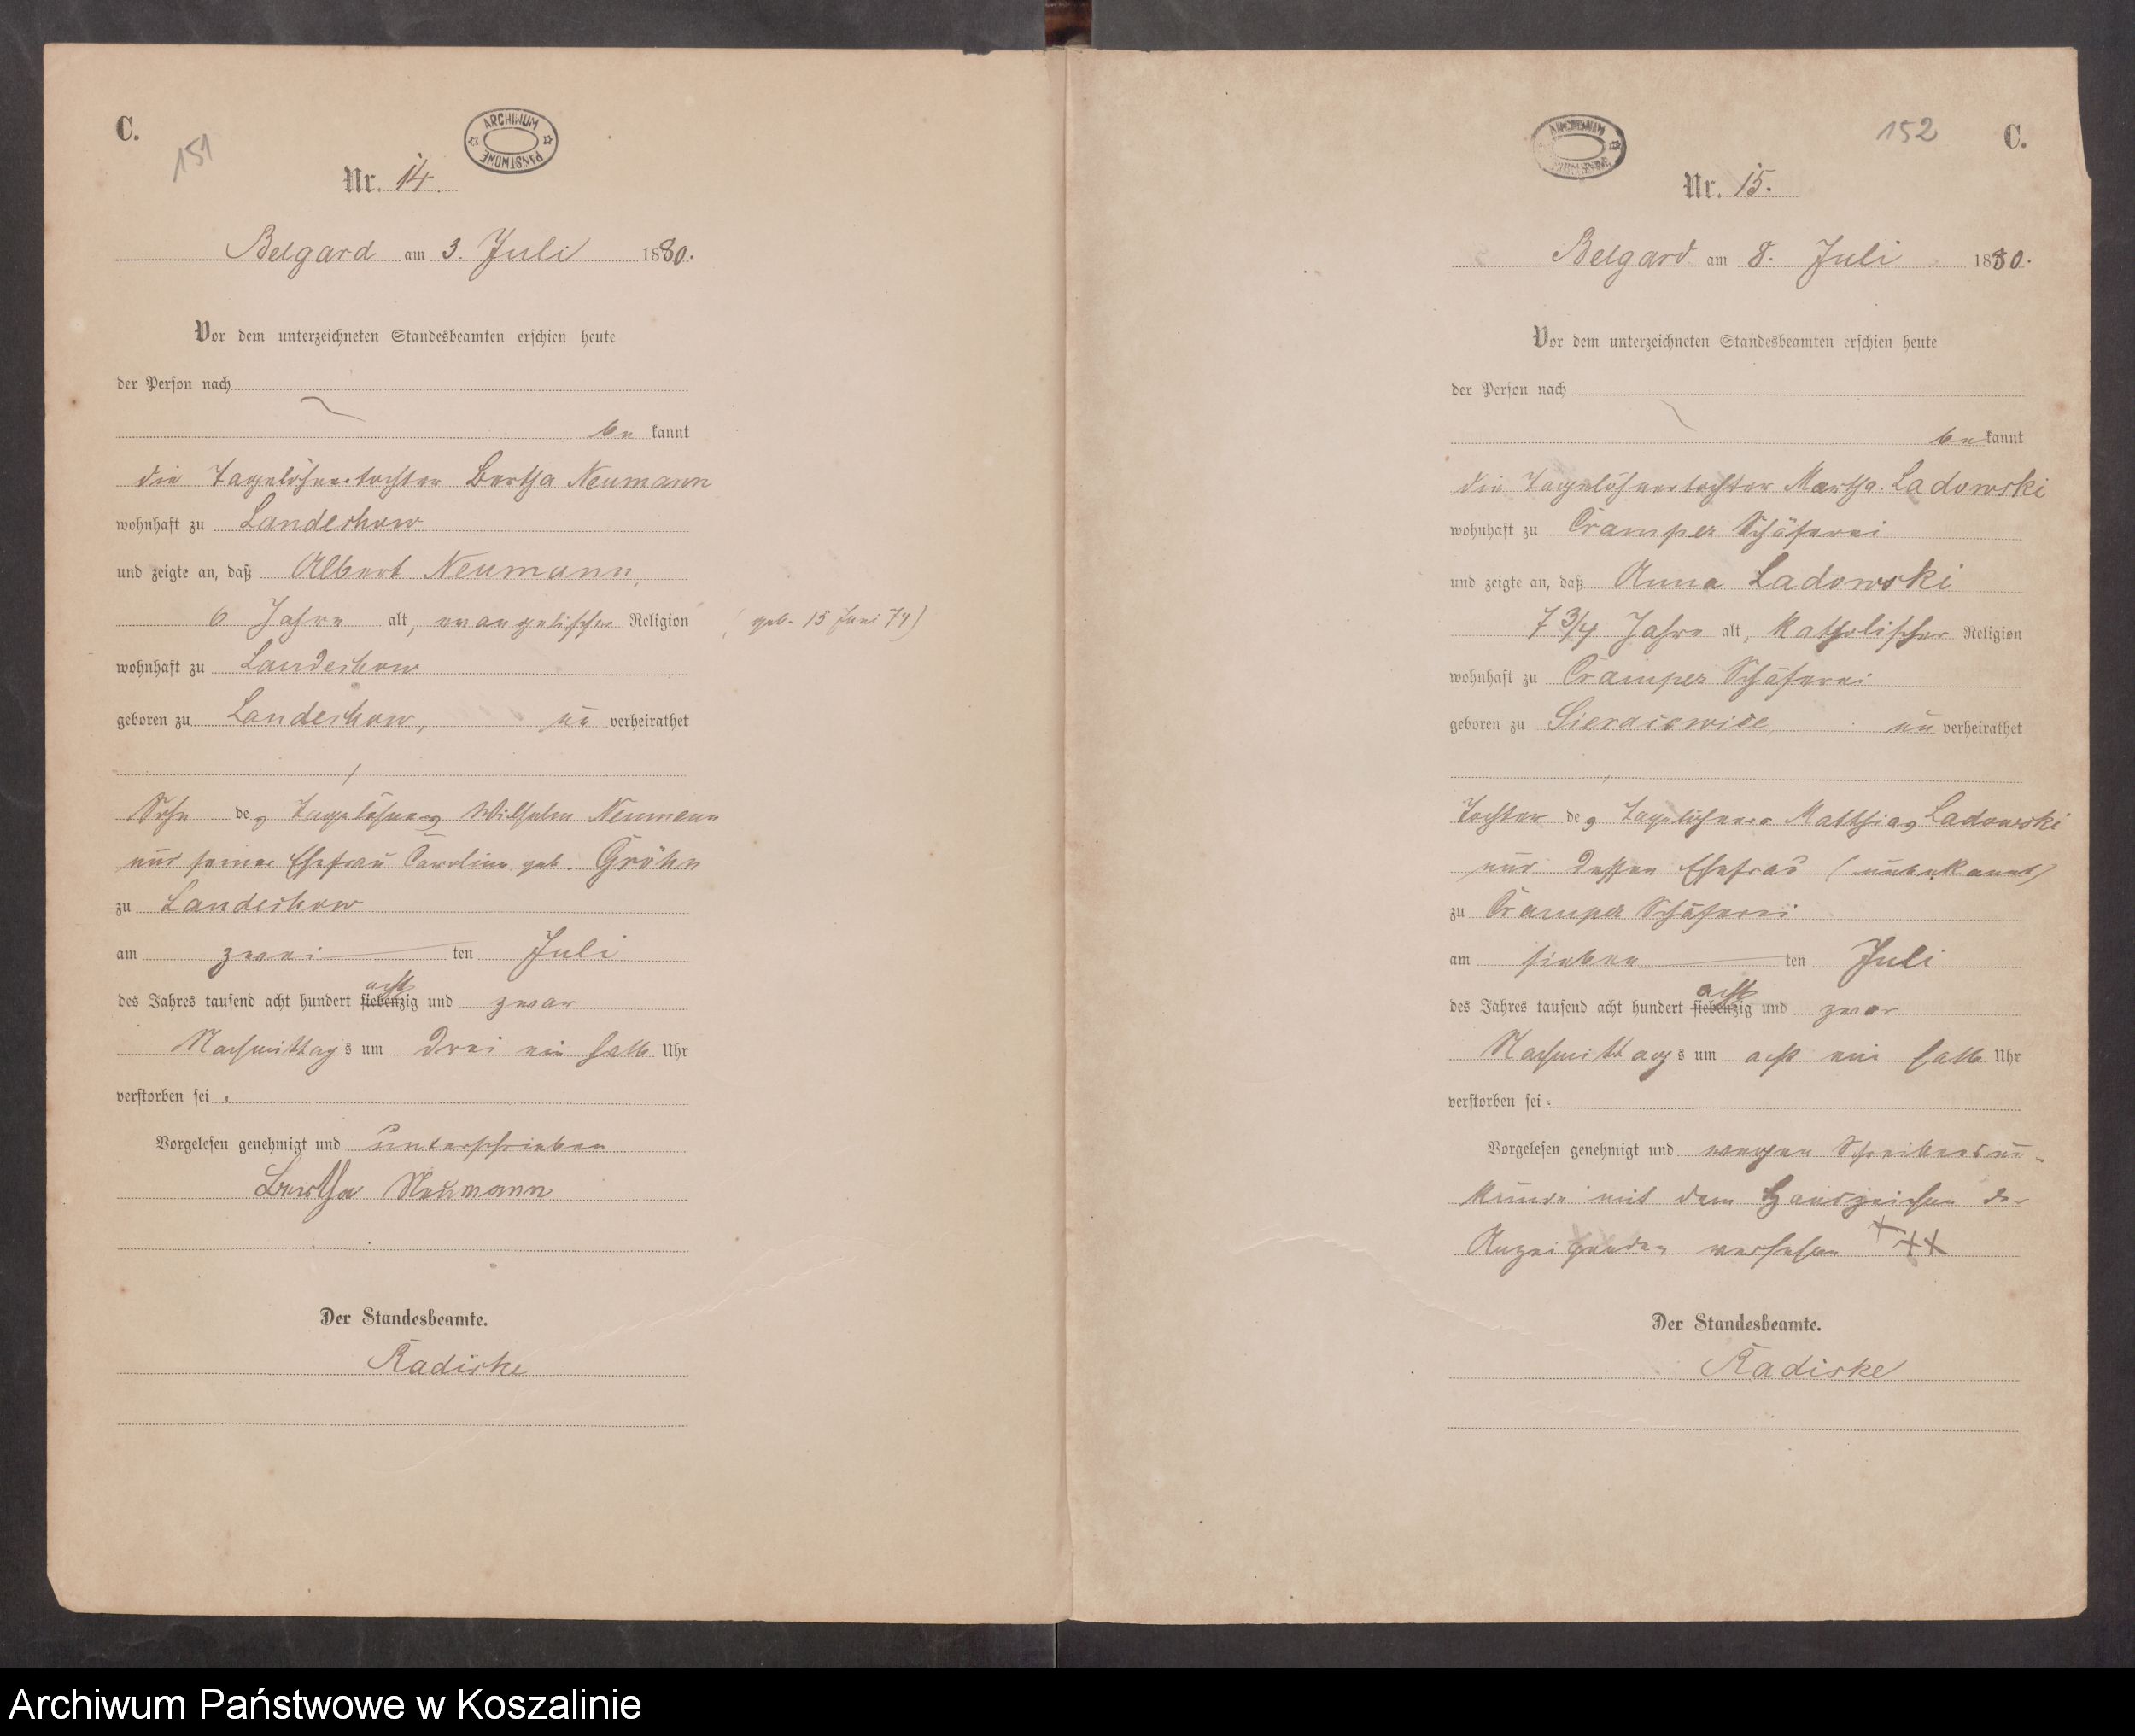 C.
151
ARCHIWUM PAŃSTWOWE
Nr. 14.
Belgard am 3. Juli 1880.
Vor dem unterzeichneten Standesbeamten erschien heute
der Person nach
be kannt
die Tagelöhnertochter Bertha Neumann
wohnhaft zu Landechow
und zeigte an, daß Albert Neumann,
6 Jahre alt, evangelischer Religion (geb. 15 Juni 74)
wohnhaft zu Landechow
geboren zu Landechow, un verheirathet
Sohn des Tagelöhners Wilhelm Neumann
und seiner Ehefrau Caroline geb. Gröhn
zu Landechow
am zwei ten Juli
des Jahres tausend acht hundert siebenzig acht und zwar
Nachmittags um drei ein halb Uhr
verstorben sei.
Vorgelesen genehmigt und unterschrieben
Bertha Neumann
Der Standesbeamte.
Radiske
152
C.
ARCHIWUM
Nr. 15.
Belgard am 8. Juli 1880.
Vor dem unterzeichneten Standesbeamten erschien heute
der Person nach
be kannt
die Tagelöhnertochter Martha Ladowski
wohnhaft zu Cramper Schäferei
und zeigte an, daß Anna Ladowski
7 3/4 Jahre alt, katholischer Religion
wohnhaft zu Cramper Schäferei
geboren zu un verheirathet
Tochter des Tagelöhners Matthias Ladowski
und dessen Ehefrau (unbekannt)
zu Cramper Schäferei
am sieben ten Juli
des Jahres tausend acht hundert siebenzig acht und zwar
Nachmittags um acht ein halb Uhr
verstorben sei.
Vorgelesen genehmigt und wegen Schreibensun-
kunde mit dem Handzeichen der
Anzeigenden versehen +++
Der Standesbeamte.
Radiske
Archiwum Państwowe w Koszalinie